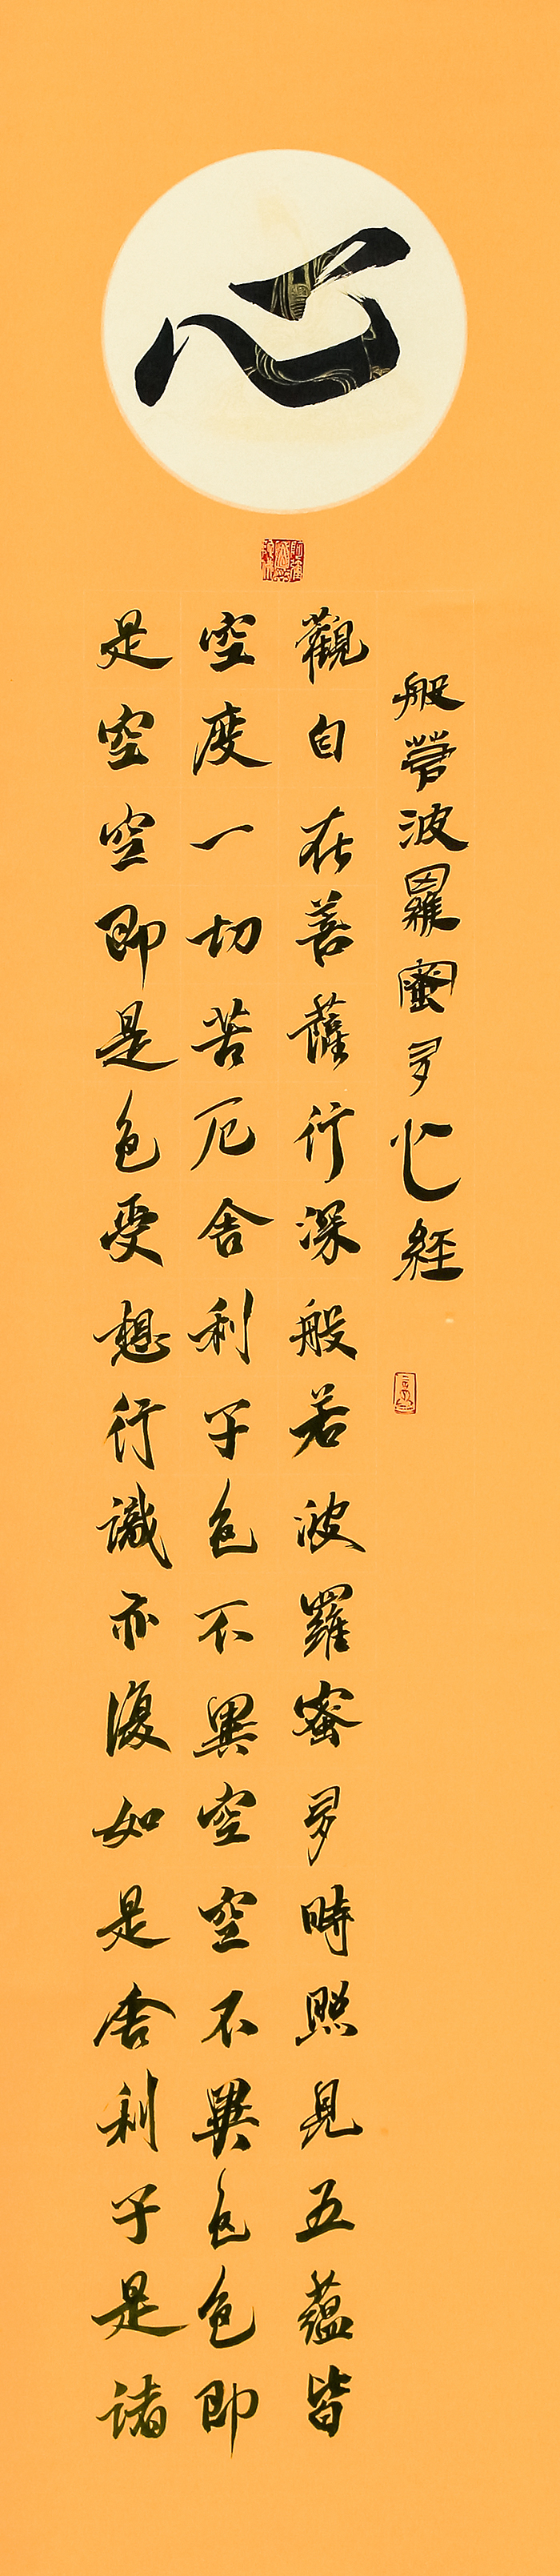 心
般若波羅蜜多心經
觀自在菩薩行深般若波羅蜜多時照見五蘊皆
空度一切苦厄舍利子色不異空空不異色色即
是空空即是色受想行識亦復如是舍利子是諸